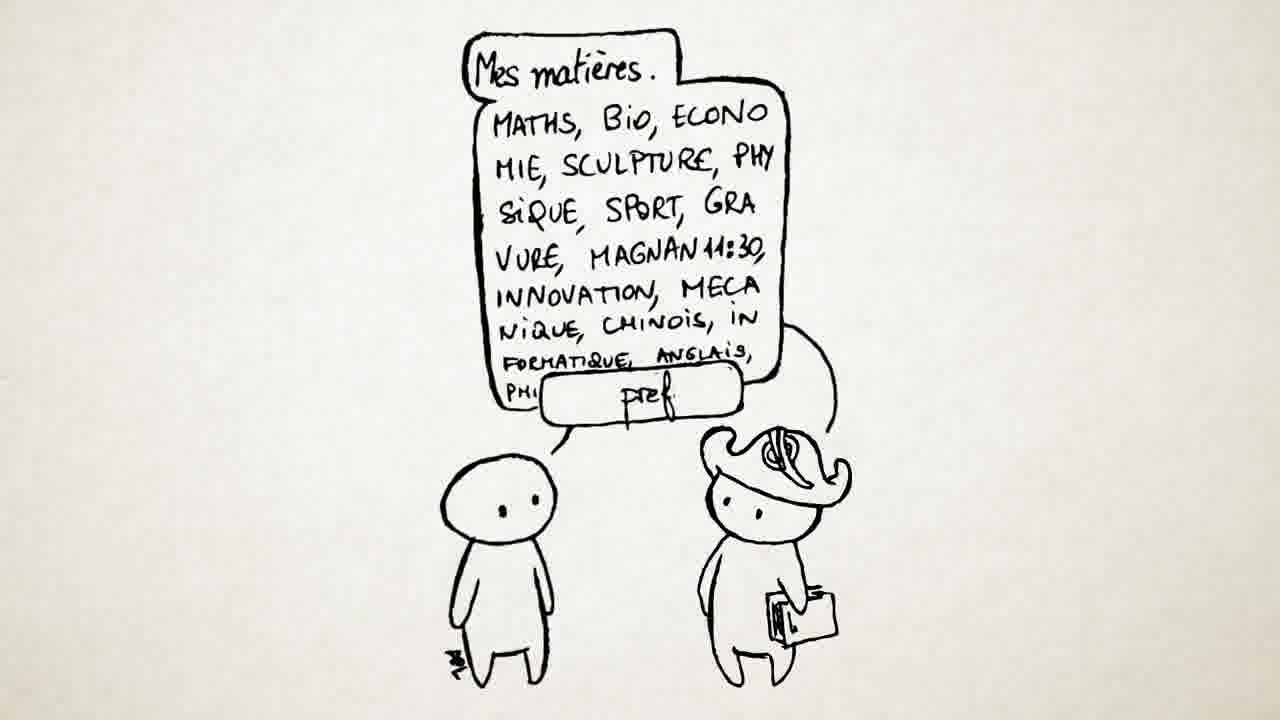 Mes matières.
MATHS, BiO, ECONO
MIE, SCULPTURE, PHY
SiQUE, SPORT, GRA
VURE, MAGNAN 11:30,
INNOVATION, MECA
NiQUE, CHINOiS, iN
FORMATIQUE, ANGLAiS,
PHi
pref